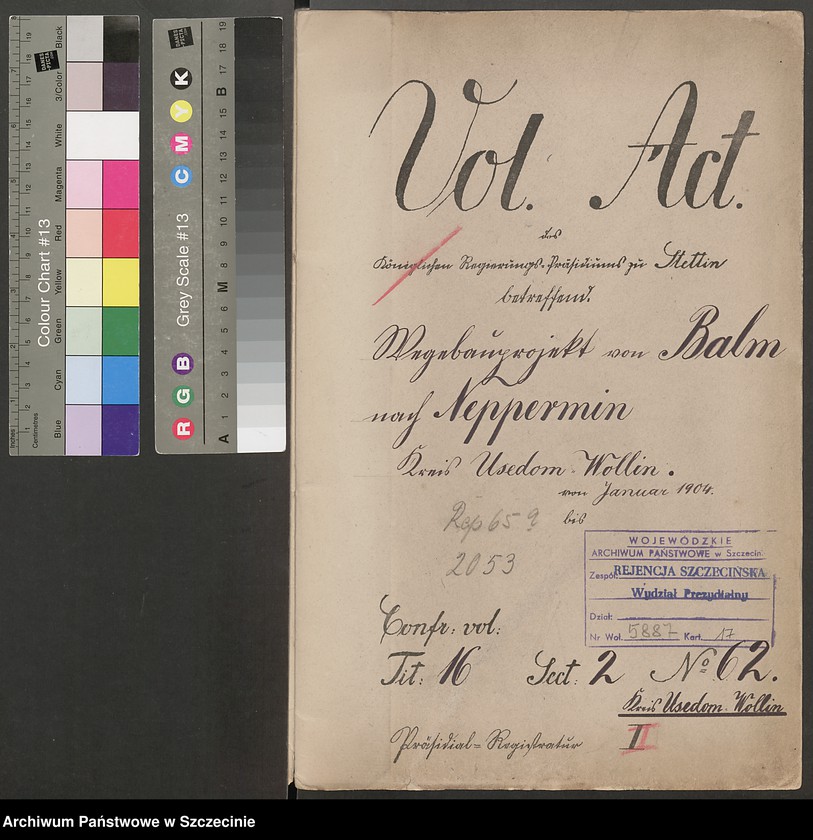 Vol. Act.
des
Königlichen Regierungs-Präsidiums zu Stettin
betreffend.
Wegebauprojekt von Balm
nach Neppermin
Kreis Usedom-Wollin.
von Januar 1904.
bis
Rep 65 a
2053
WOJEWÓDZKIE
ARCHIWUM PAŃSTWOWE w Szczecin
Zespół REJENCJA SZCZECIŃSKA
Wydział Prezydialny
Dział:
Nr Wol. 5887 Kart. 17
Confr: vol:
Tit: 16 Sect: 2 No 62.
Kreis Usedom-Wollin
Präsidial=Registratur II
Colour Chart #13
Blue
Cyan
Green
Yellow
Red
Magenta
White
3/Color
Black
Inches
Centimetres
DANES
PICTA
Grey Scale #13
R G B C M Y K
A 1 2 3 4 5 6 M 8 9 10 11 12 13 14 15 B 17 18 19
DANES
PICTA
Archiwum Państwowe w Szczecinie